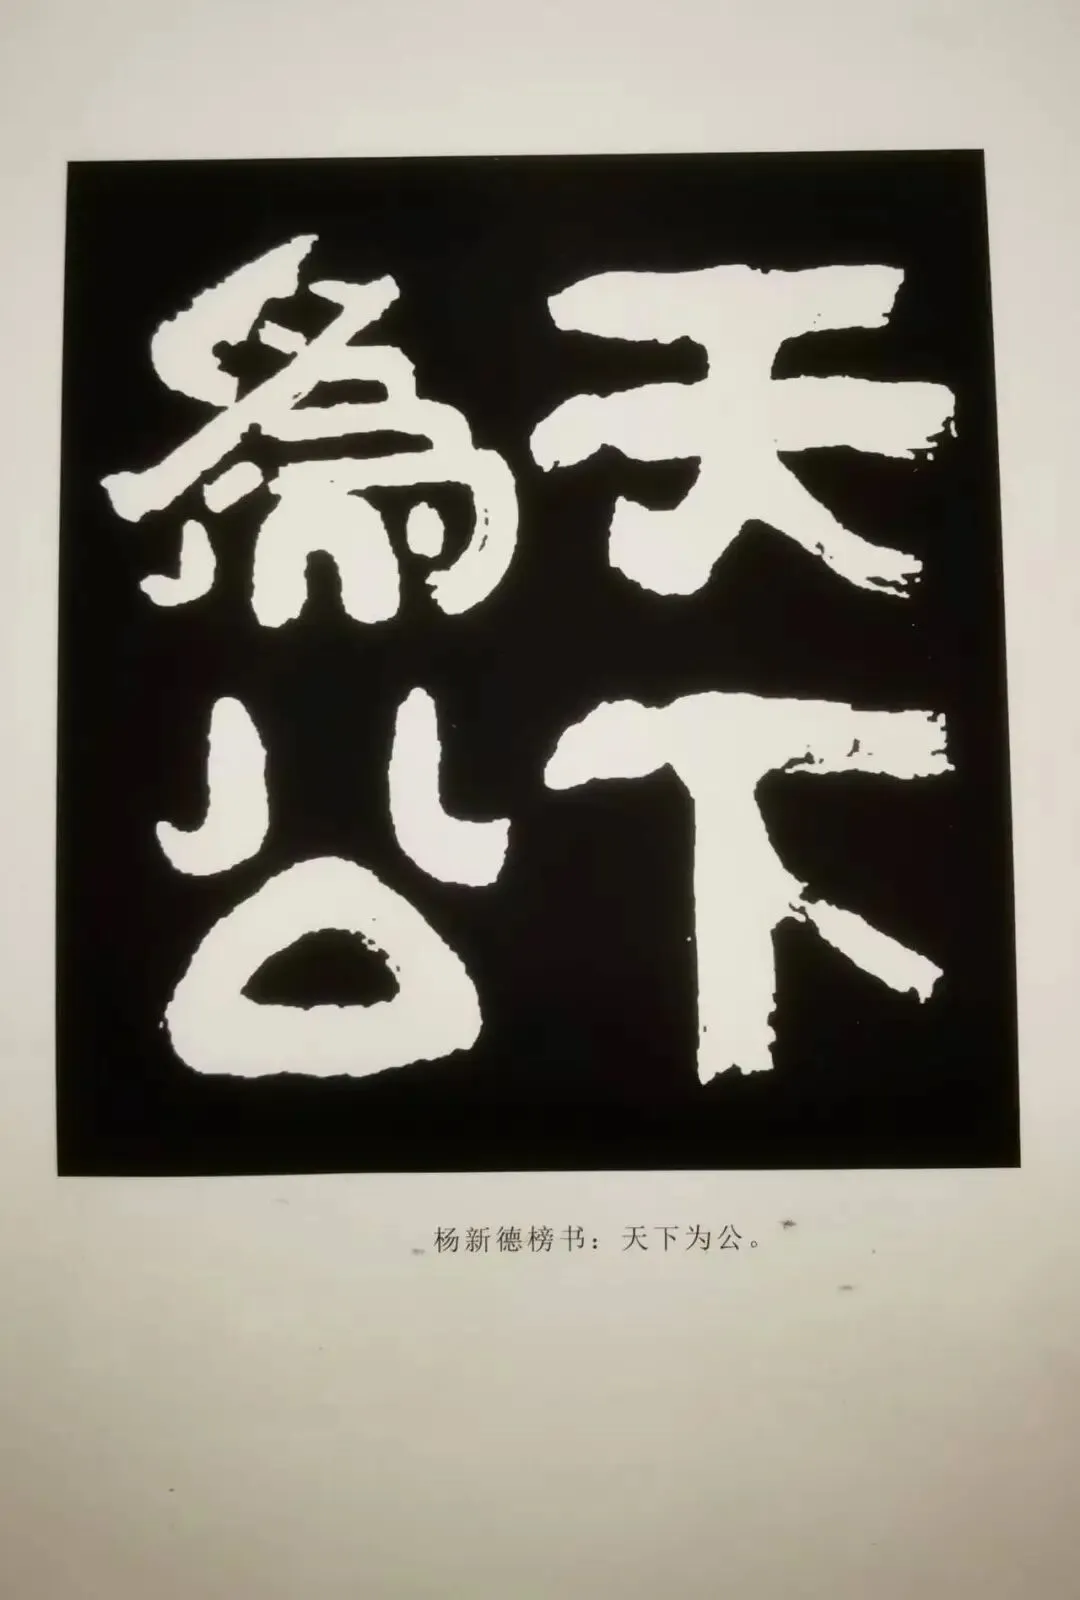 天下
為公
杨新德榜书：天下为公。